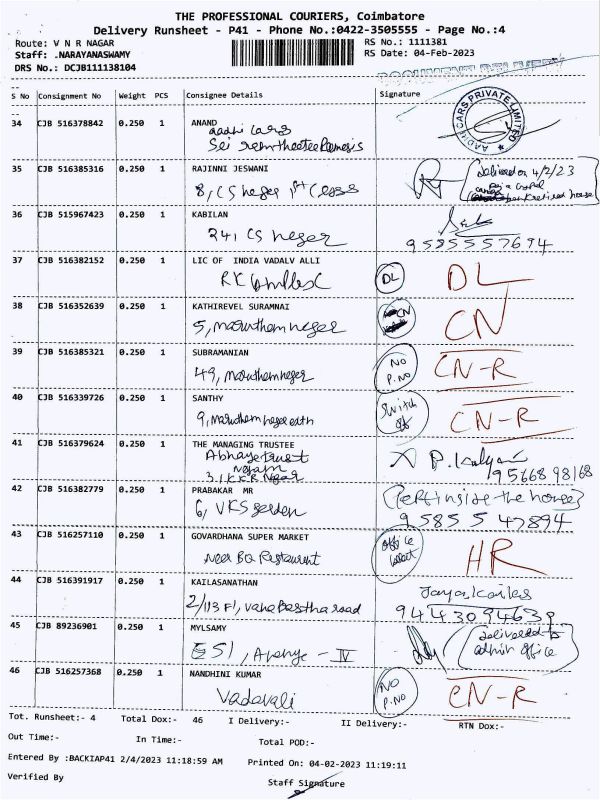 THE PROFESSIONAL COURIERS, Coimbatore
Delivery Runsheet - P41 - Phone No.:0422-3505555 - Page No.:4
Route: V N R NAGAR
RS No.: 1111381
Staff: .NARAYANASWAMY
RS Date: 04-Feb-2023
DRS No.: DCJB111138104
DOCUMENT DELIVERY
S No Consignment No Weight PCS Consignee Details Signature
34 CJB 516378842 0.250 1 ANAND
aadhi cars
Sri
AADHI CARS PRIVATE LIMITED
35 CJB 516385316 0.250 1 RAJINNI JESWANI
8, CS neger 1st cross
Delivered on 4/2/23
36 CJB 515967423 0.250 1 KABILAN
241 CS neger
9585557694
37 CJB 516382152 0.250 1 LIC OF INDIA VADALV ALLI
RK Complex
DL DL
38 CJB 516352639 0.250 1 KATHIREVEL SURAMNAI
5, maruthem neger
CN CN
39 CJB 516385321 0.250 1 SUBRAMANIAN
49, maruthem neger
NO
P.NO
CN-R
40 CJB 516339726 0.250 1 SANTHY
9, maruthem neger
Switch
off
CN-R
41 CJB 516379624 0.250 1 THE MANAGING TRUSTEE
Abhaya trust
31 KKR Nagar
P. Kalyani
9566898168
42 CJB 516382779 0.250 1 PRABAKAR MR
6, VKS garden
(left inside the house)
9585547894
43 CJB 516257110 0.250 1 GOVARDHANA SUPER MARKET
Neer BQ Restaurant
office
HR
44 CJB 516391917 0.250 1 KAILASANATHAN
2/113 F1, road
9443094639
45 CJB 89236901 0.250 1 MYLSAMY
E 51, Avenye - IV
delivered to
admin office
46 CJB 516257368 0.250 1 NANDHINI KUMAR
Vadavali
NO
P.NO
CN-R
Tot. Runsheet:- 4 Total Dox:- 46 I Delivery:- II Delivery:- RTN Dox:-
Out Time:- In Time:- Total POD:-
Entered By :BACKIAP41 2/4/2023 11:18:59 AM Printed On: 04-02-2023 11:19:11
Verified By
Staff Signature